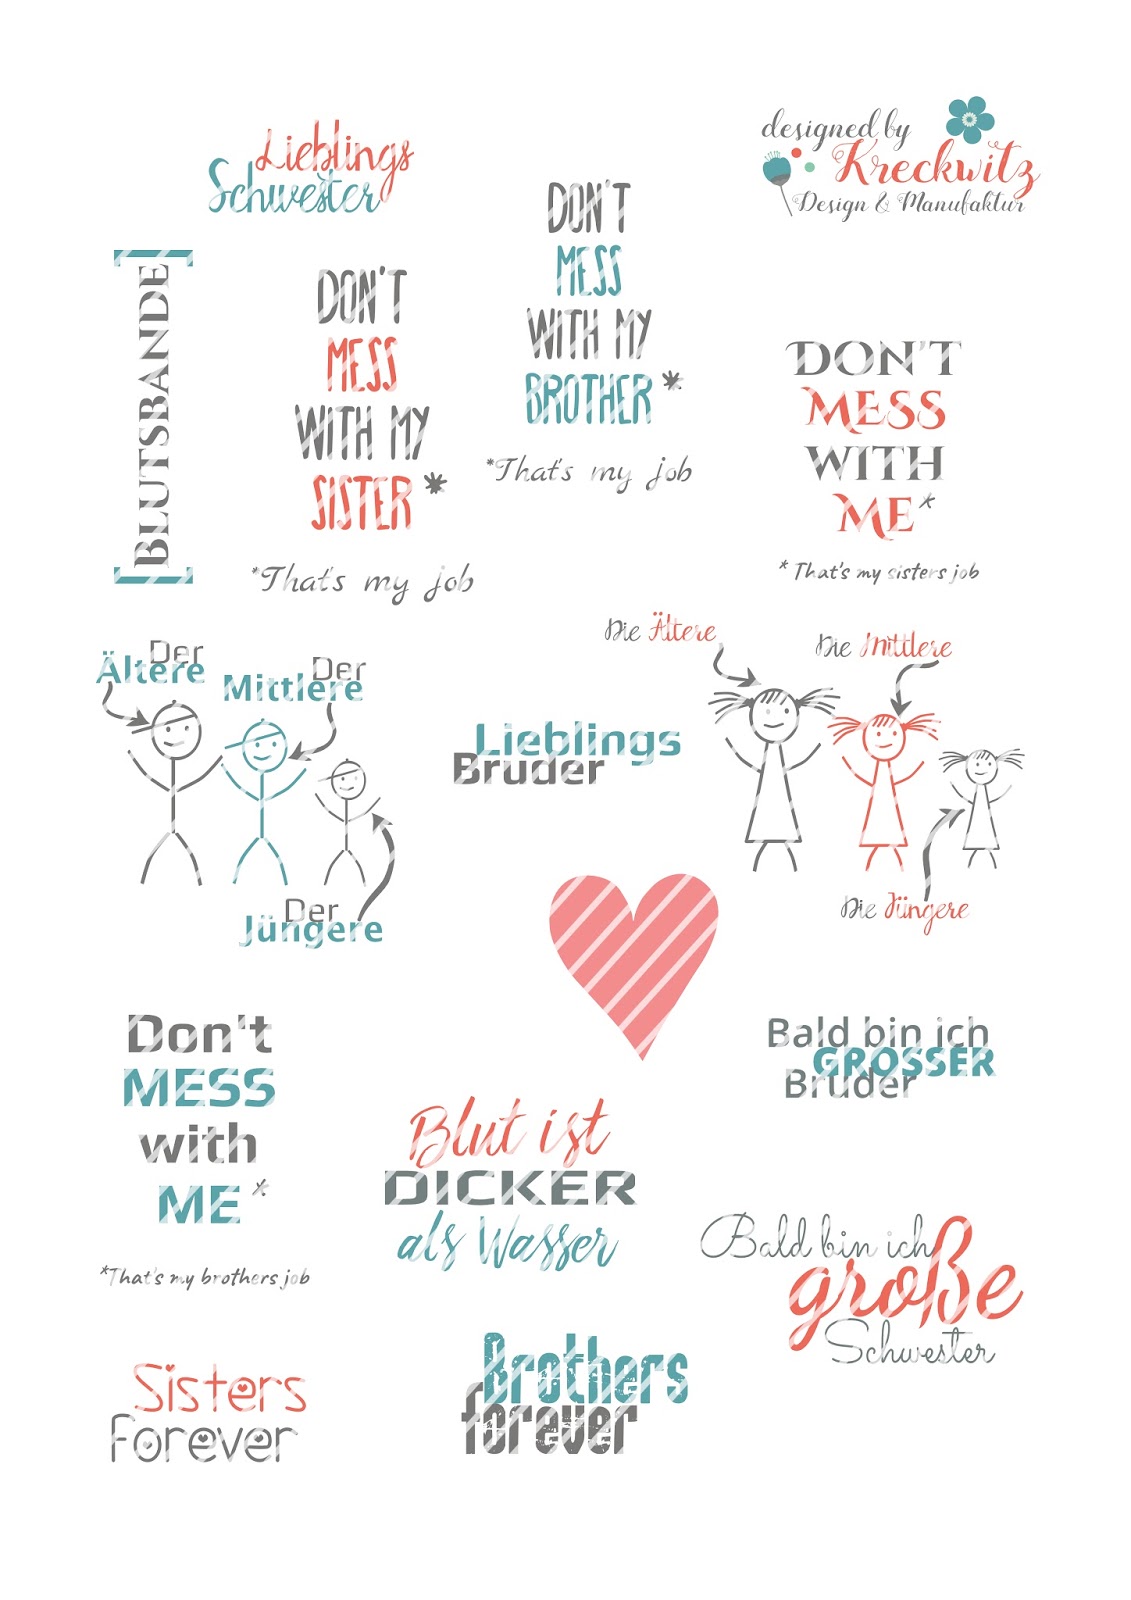 Lieblings
Schwester
designed by
Kreckwitz
Design & Manufaktur
[BLUTSBANDE]
DON'T
MESS
WITH MY
SISTER*
*That's my job
DON'T
MESS
WITH MY
BROTHER*
*That's my job
DON'T
MESS
WITH
ME*
* That's my sisters job
Der
Ältere
Der
Mittlere
Der
Jüngere
Lieblings
Bruder
Die Ältere
Die Mittlere
Die Jüngere
Don't
MESS
with
ME*
*That's my brothers job
Blut ist
DICKER
als Wasser
Bald bin ich
GROSSER
Bruder
Bald bin ich
große
Schwester
Sisters
Forever
Brothers
forever